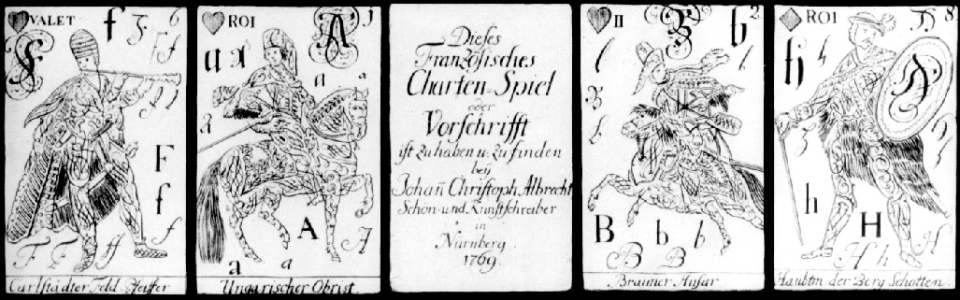 VALET f 6
F F f
F
f f
F F ff f
Carlstädter Feld Pfeifer
ROI A 1
a a
a
A
a a
Ungarischer Obrist
Dieses
Französisches
Charten-Spiel
oder
Vorschrifft
ist zu haben u. zu finden
beÿ
Johañ Christoph Albrecht
Schön- und Kunstschreiber
in
Nürnberg.
1769.
II B b 2
B b b
B B
Brauner Husar
ROI H 8
h
h H
H h H
Haubtm der Berg Schotten.